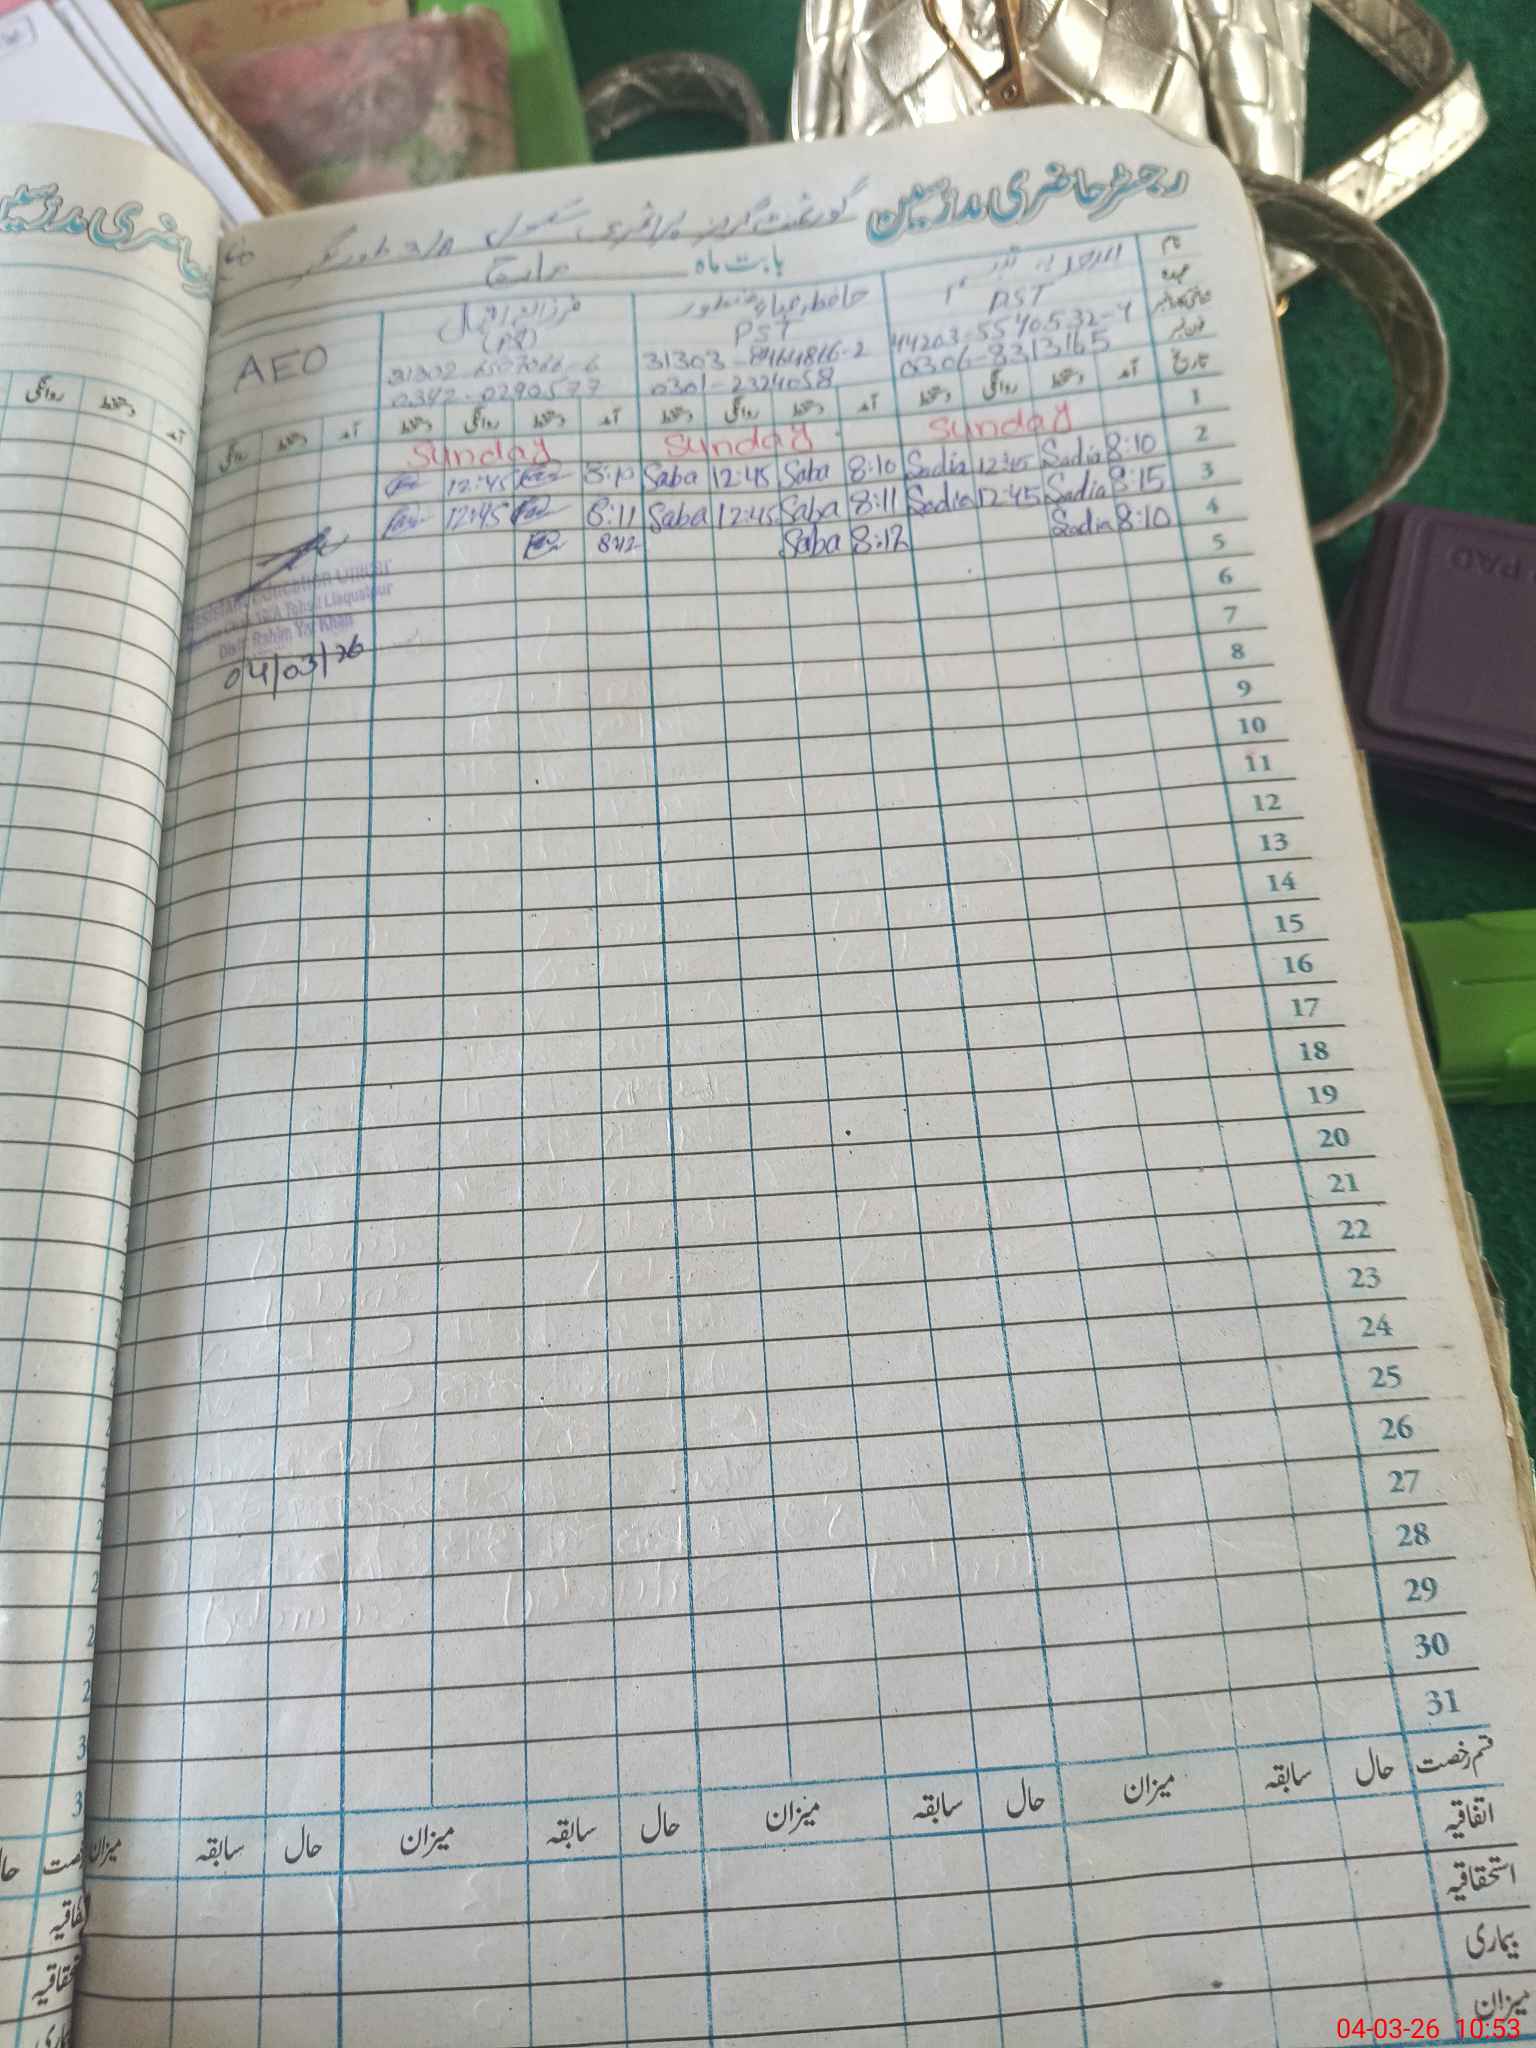 رجسٹر حاضری مدرسین گورنمنٹ گرلز پرائمری سکول
بابت ماہ مارچ
نام
عہدہ
PST PST AEO
44203-5540532-4 31303-8464816-2
0306-8313165 0301-2324058 0342-0290577
تاریخ آمد دستخط روانگی دستخط آمد دستخط روانگی دستخط آمد دستخط روانگی دستخط آمد دستخط روانگی
1 Sunday Sunday Sunday
2 8:10 Sadia 12:45 Sadia 8:10 Saba 12:45 Saba 8:10 12:45
3 8:15 Sadia 12:45 Sadia 8:11 Saba 12:45 Saba 8:11 12:45
4 8:10 Sadia 8:12 Saba 8:12
5
6
7
8
9
10
11
12
13
14
15
16
17
18
19
20
21
22
23
24
25
26
27
28
29
30
31
Assistant Education Officer
Tehsil Liaquatpur
Distt. Rahim Yar Khan
04/03/26
قسم رخصت حال سابقہ میزان حال سابقہ میزان حال سابقہ میزان حال سابقہ میزان
اتفاقیہ
استحقاقیہ
بیماری
میزان
حاضری مدرسین
آمد دستخط روانگی
اتفاقیہ
PAD
04-03-26 10:53